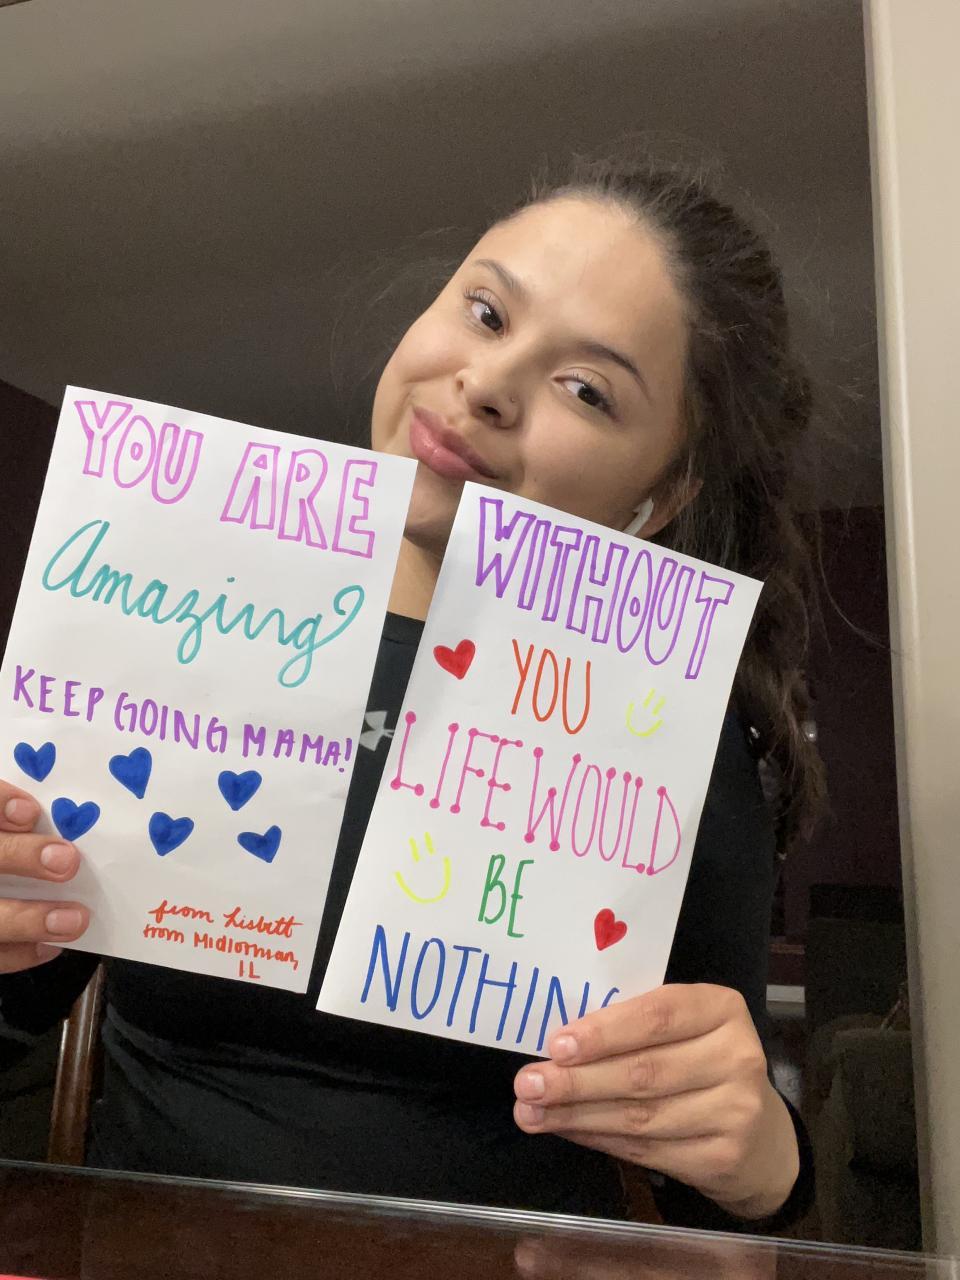 YOU ARE
Amazing
KEEP GOING MAMA!
from Lisbett
from Midlorman,
IL
WITHOUT
YOU
LIFE WOULD
BE
NOTHING